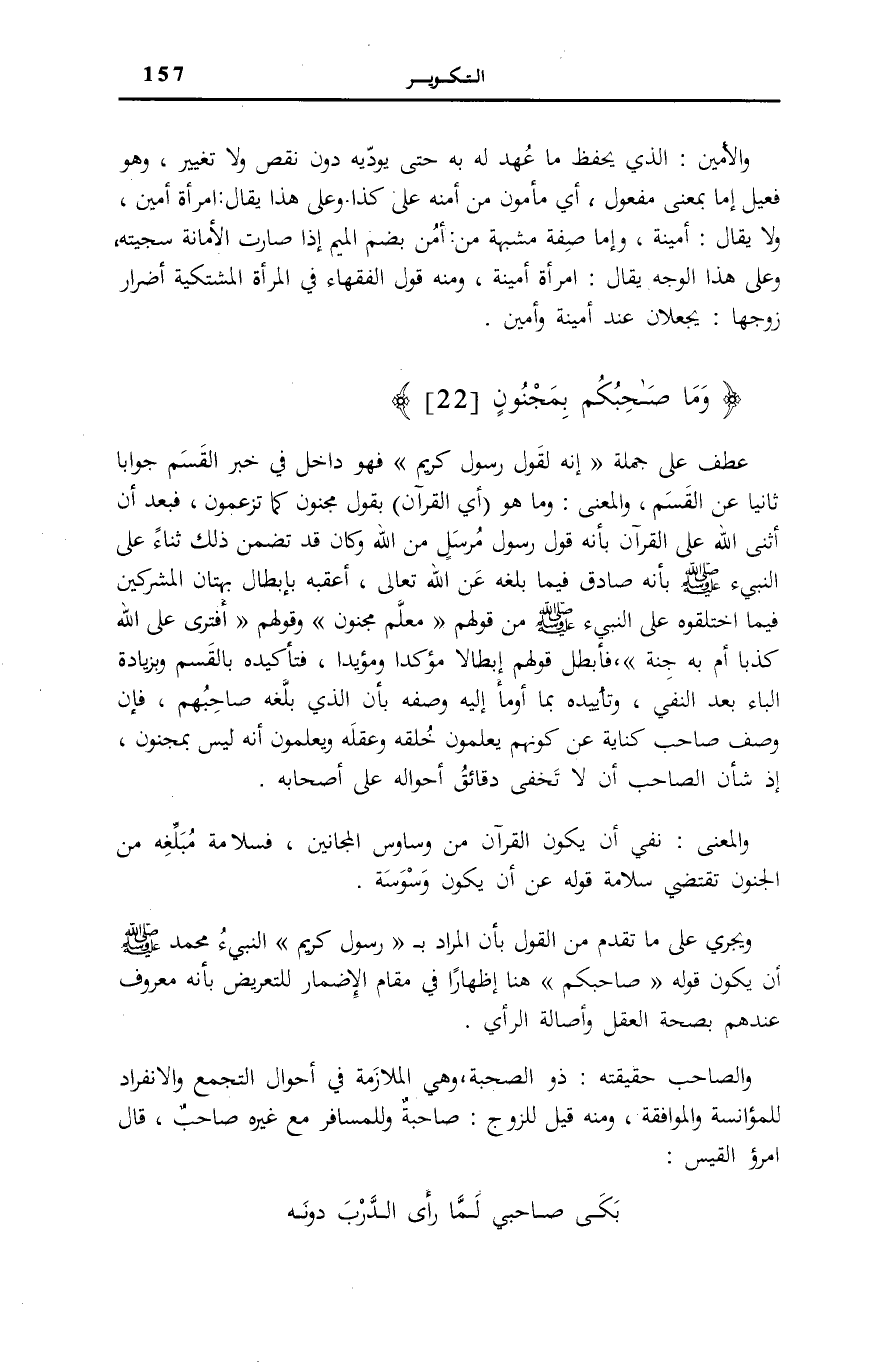 التكويـر 157
والأمين : الذي يحفظ ما عُهد له به حتى يودّيه دون نقص ولا تغيير ، وهو
فعيل إما بمعنى مفعول ، أي مأمون من أمنه على كذا.وعلى هذا يقال:امرأة أمين ،
ولا يقال : أمينة ، وإما صِفة مشبهة من: أمُن بضم الميم إذا صارت الأمانة سجيته،
وعلى هذا الوجه يقال : امرأة أمينة ، ومنه قول الفقهاء في المرأة المشتكية أضرار
زوجها : يجعلان عند أمينة وأمين .
﴿ وَمَا صَـٰحِبُكُم بِمَجْنُونٍ [22] ﴾
عطف على جملة « إنه لقَول رسول كريم » فهو داخل في خبر القَسَم جوابا
ثانيا عن القَسَم ، والمعنى : وما هو (أي القرآن) بقول مجنون كما تزعمون ، فبعد أن
أثنى الله على القرآن بأنه قول رسول مُرسَلٍ من الله وكان قد تضمن ذلك ثناءً على
النبيء ﷺ بأنه صادق فيما بلغه عَن الله تعالى ، أعقبه بإبطال بهتان المشركين
فيما اختلقوه على النبيء ﷺ من قولهم « معلَّم مجنون » وقولهم « أَفترى على الله
كذبا أم به جِنة »،فأبطل قولهم إبطالا مؤكدا ومؤيدا ، فتأكيده بالقَسم وبزيادة
الباء بعد النفي ، وتأييده بما أومأ إليه وصفه بأن الذي بلَّغه صاحِبُهم ، فإن
وصف صاحب كناية عن كونهم يعلمون خُلقه وعقلَه ويعلمون أنه ليس بمجنون ،
إذ شأن الصاحب أن لا تَخفى دقائقُ أحواله على أصحابه .
والمعنى : نفي أن يكون القرآن من وساوس المجانين ، فسلامة مُبَلِّغِه من
الجنون تقتضي سلامة قوله عن أن يكون وَسْوَسَة .
ويجري على ما تقدم من القول بأن المراد بـ « رسول كريم » النبيءُ محمد ﷺ
أن يكون قوله « صاحبكم » هنا إظهارًا في مقام الإِضمار للتعريض بأنه معروف
عندهم بصحة العقل وأصالة الرأي .
والصاحب حقيقته : ذو الصحبة،وهي الملازَمة في أحوال التجمع والانفراد
للمؤانسة والموافقة ، ومنه قيل للزوج : صاحبةٌ وللمسافر مع غيره صاحبٌ ، قال
امرؤ القيس :
بَكَـى صـاحبي لَـمَّا رأَى الـدَّرْبَ دونَـه